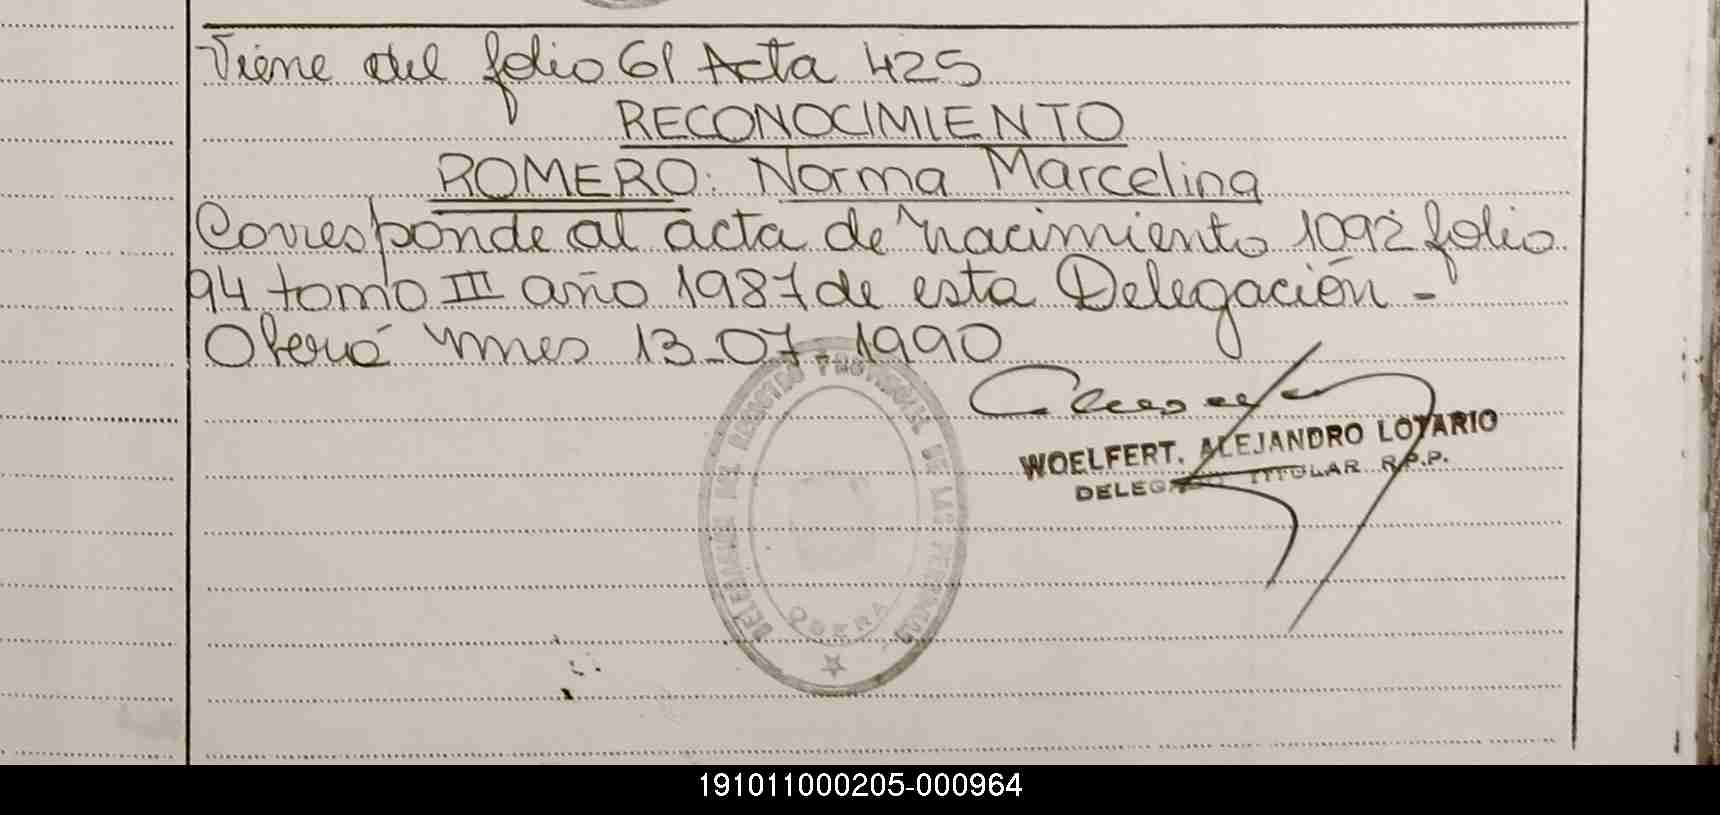 Viene del folio 61 Acta 425
RECONOCIMIENTO
ROMERO: Norma Marcelina
Corresponde al acta de nacimiento 1092 folio
94 tomo III año 1987 de esta Delegación -
Oberá Mnes 13-07-1990
WOELFERT. ALEJANDRO LOTARIO
DELEGADO TITULAR R.P.P.
DELEGACION DEL REGISTRO PROVINCIAL DE LAS PERSONAS
OBERA
191011000205-000964